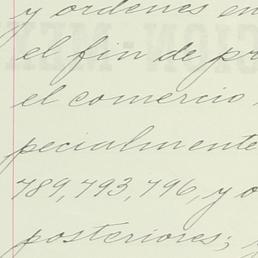 y ordenes en
el fin de pr
el comercio
pecialmente
789, 793, 796, y o
posteriores; y